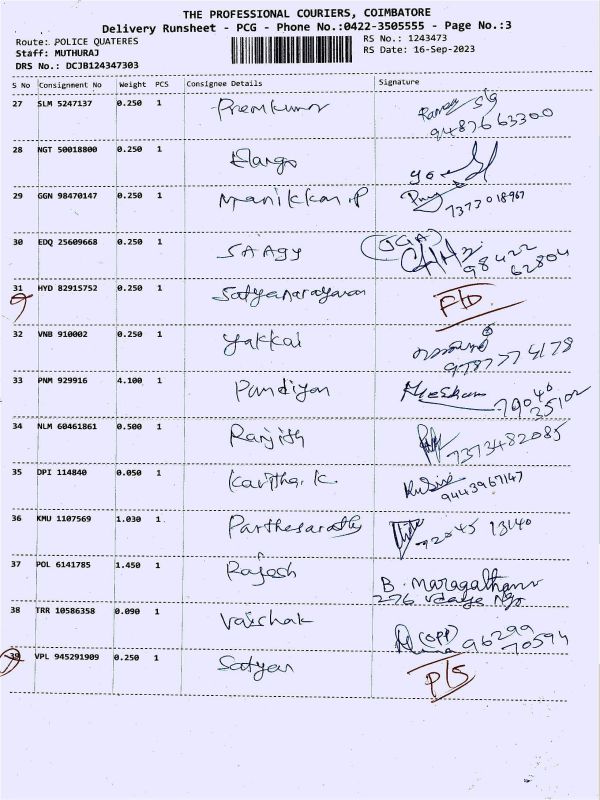 THE PROFESSIONAL COURIERS, COIMBATORE
Delivery Runsheet - PCG - Phone No.:0422-3505555 - Page No.:3
Route: POLICE QUATERES
RS No.: 1243473
Staff: MUTHURAJ
RS Date: 16-Sep-2023
DRS No.: DCJB124347303
S No Consignment No Weight PCS Consignee Details Signature
27 SLM 5247137 0.250 1 Premkumar
9487663300
28 NGT 50018800 0.250 1 Elango
29 GGN 98470147 0.250 1 Manikkam.P
7373018967
30 EDQ 25609668 0.250 1 SAAGY
98422
62804
31 HYD 82915752 0.250 1 Satyanarayanan F/D
32 VNB 910002 0.250 1 Yakkai
9787774178
33 PNM 929916 4.100 1 Pandiyan
79040
35102
34 NLM 60461861 0.500 1 Ranjith
7373482085
35 DPI 114840 0.050 1 Kavitha.K
9443967147
36 KMU 1107569 1.030 1 Parthesarathy
92045 13140
37 POL 6141785 1.450 1 Rajesh
B. Maragatham
276 Udaya Ngr
38 TRR 10586358 0.090 1 Vaishak
(opp) 96299
70594
39 VPL 945291909 0.250 1 Satyan P/S